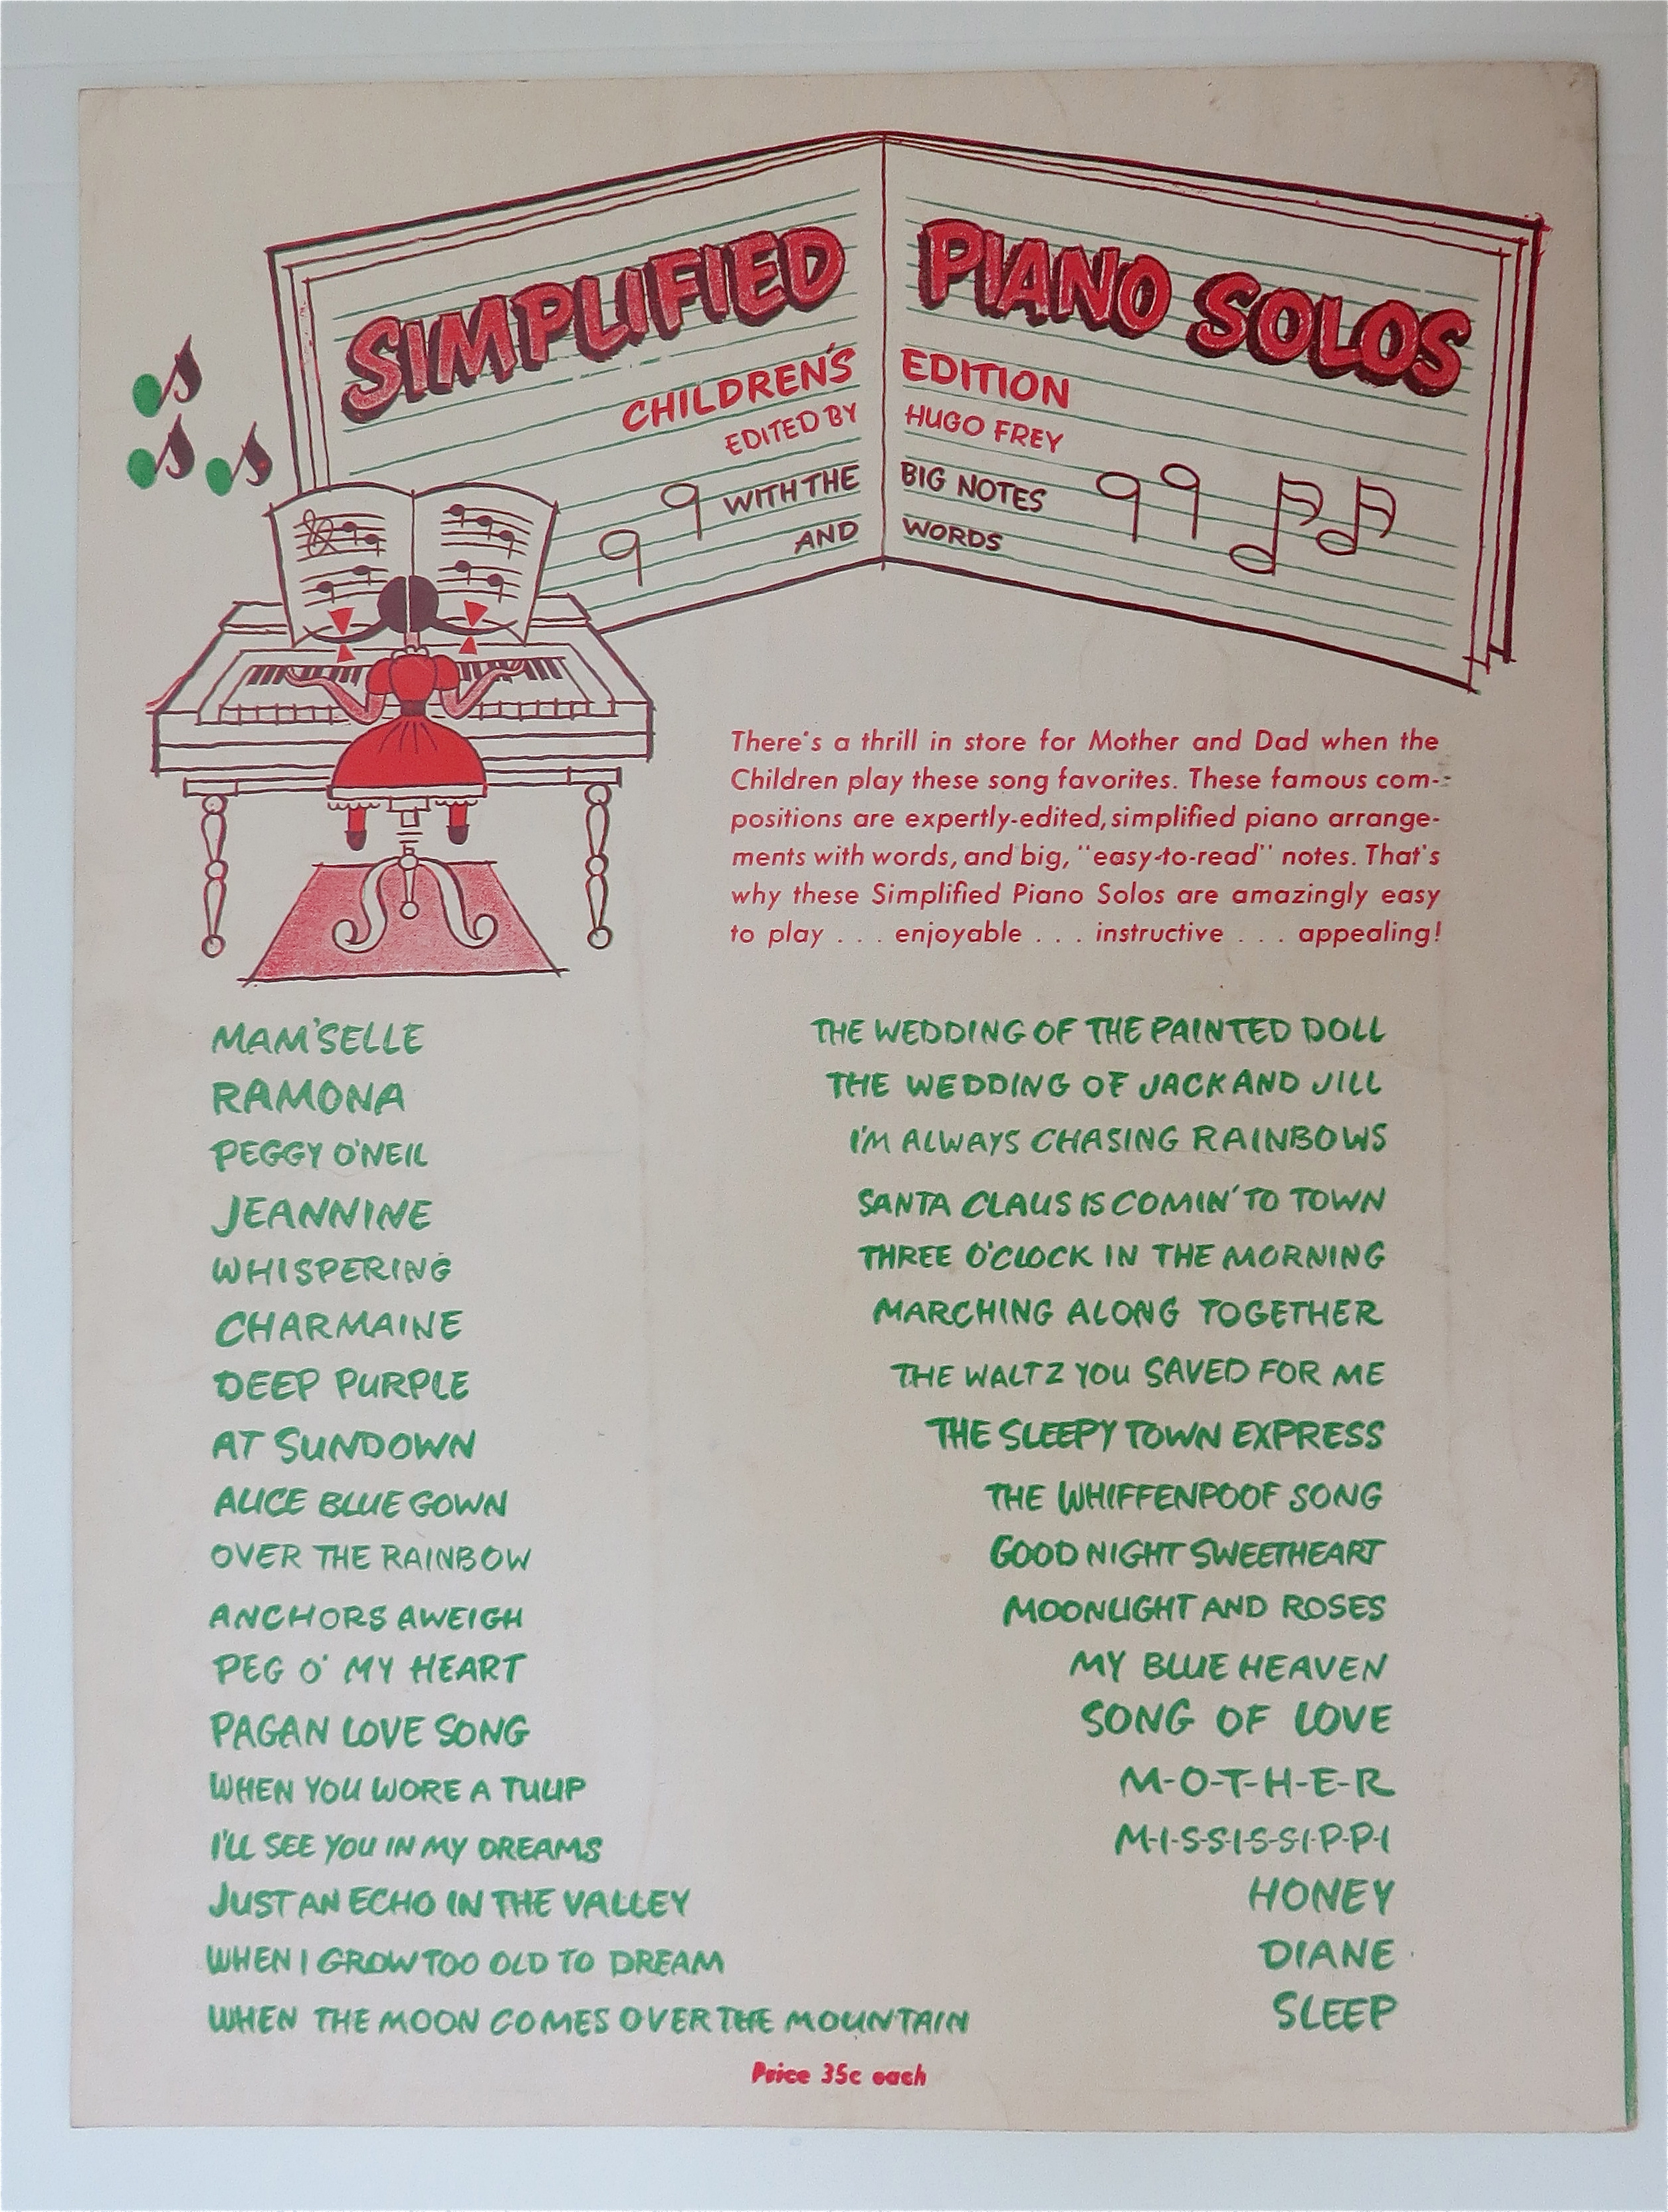 SIMPLIFIED PIANO SOLOS
CHILDREN'S EDITION
EDITED BY HUGO FREY
WITH THE BIG NOTES
AND WORDS
There's a thrill in store for Mother and Dad when the
Children play these song favorites. These famous com-
positions are expertly-edited, simplified piano arrange-
ments with words, and big, "easy-to-read" notes. That's
why these Simplified Piano Solos are amazingly easy
to play . . . enjoyable . . . instructive . . . appealing!
MAM'SELLE
RAMONA
PEGGY O'NEIL
JEANNINE
WHISPERING
CHARMAINE
DEEP PURPLE
AT SUNDOWN
ALICE BLUE GOWN
OVER THE RAINBOW
ANCHORS AWEIGH
PEG O' MY HEART
PAGAN LOVE SONG
WHEN YOU WORE A TULIP
I'LL SEE YOU IN MY DREAMS
JUST AN ECHO IN THE VALLEY
WHEN I GROW TOO OLD TO DREAM
WHEN THE MOON COMES OVER THE MOUNTAIN
THE WEDDING OF THE PAINTED DOLL
THE WEDDING OF JACK AND JILL
I'M ALWAYS CHASING RAINBOWS
SANTA CLAUS IS COMIN' TO TOWN
THREE O'CLOCK IN THE MORNING
MARCHING ALONG TOGETHER
THE WALTZ YOU SAVED FOR ME
THE SLEEPY TOWN EXPRESS
THE WHIFFENPOOF SONG
GOOD NIGHT SWEETHEART
MOONLIGHT AND ROSES
MY BLUE HEAVEN
SONG OF LOVE
M-O-T-H-E-R
M-I-S-S-I-S-S-I-P-P-I
HONEY
DIANE
SLEEP
Price 35c each